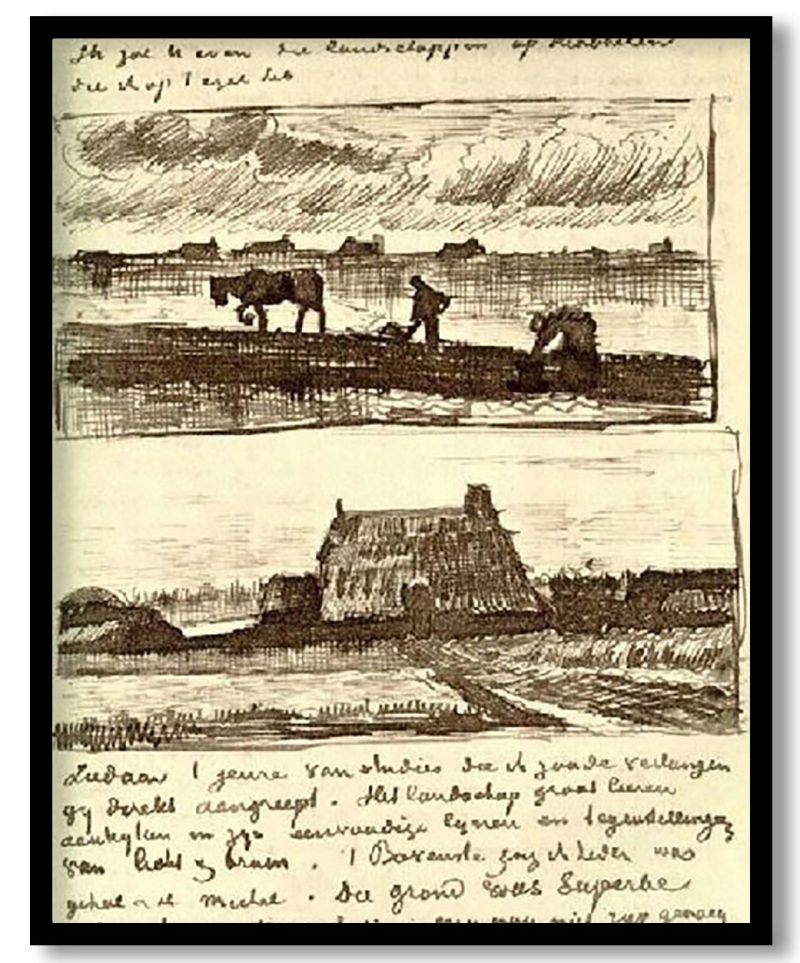 Ik zal U even die landschappen op krabbelen
die ik op 't ezel heb
Ziedaar 't genre van studies die ik zoude verlangen
gy direkt aangreept. Het landschap groot leeren
aankyken in zyn eenvoudige lynen en tegenstellingen
van licht & bruin. 't Bovenste zag ik heden was
geheel Michel. Die grond was superbe
niet ryp genoeg